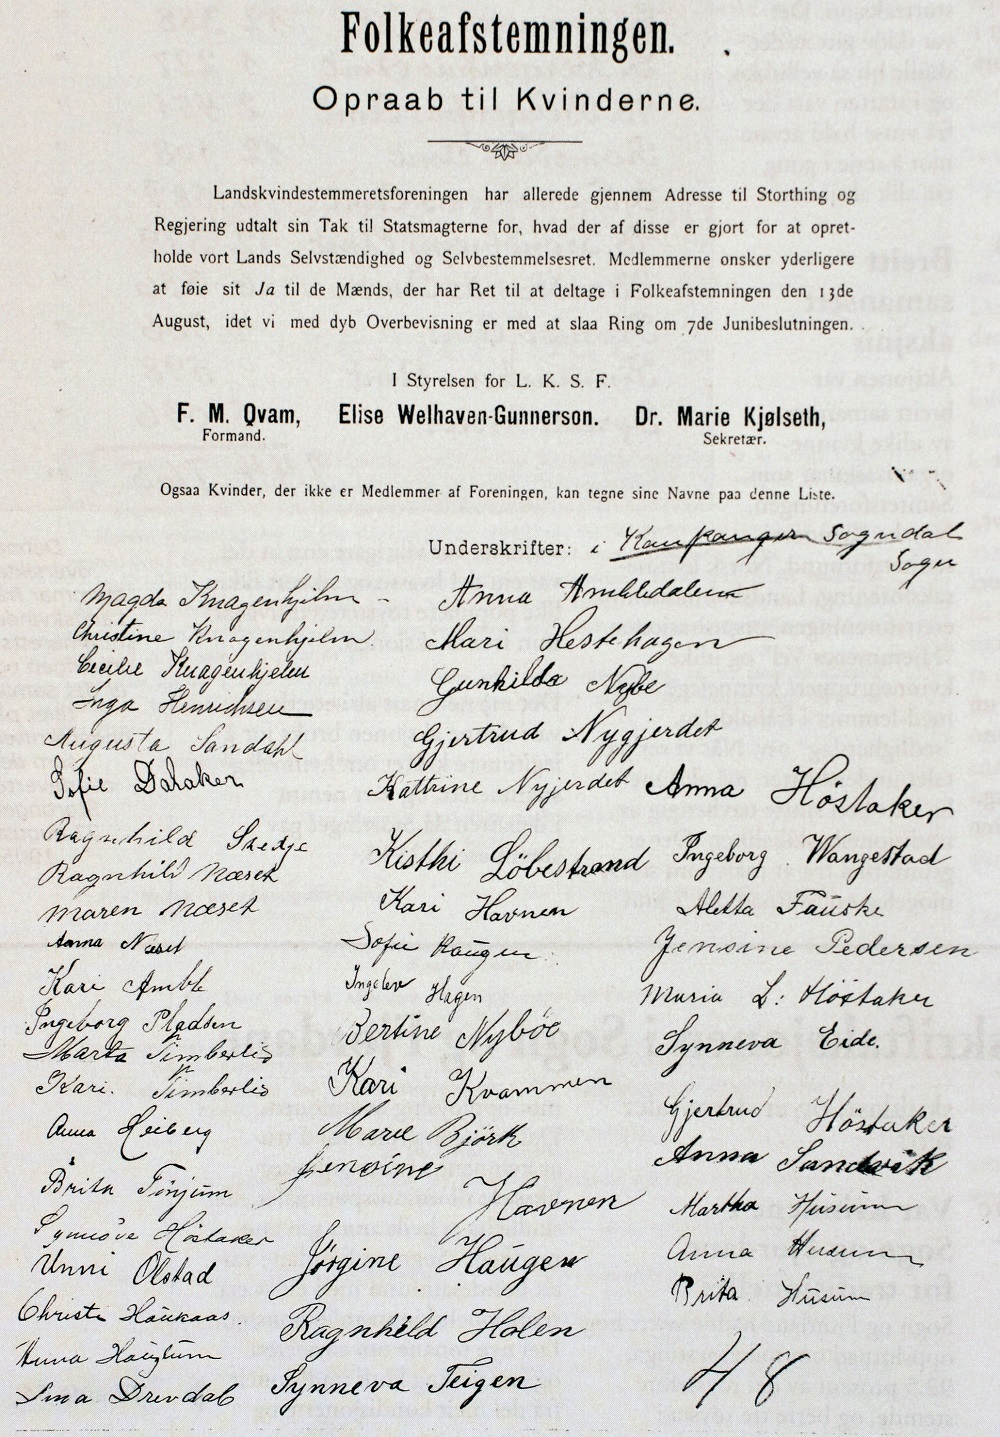 Folkeafstemningen.
Opraab til Kvinderne.
Landskvindestemmeretsforeningen har allerede gjennem Adresse til Storthing og
Regjering udtalt sin Tak til Statsmagterne for, hvad der af disse er gjort for at opret-
holde vort Lands Selvstændighed og Selvbestemmelsesret. Medlemmerne ønsker yderligere
at føie sit Ja til de Mænds, der har Ret til at deltage i Folkeafstemningen den 13de
August, idet vi med dyb Overbevisning er med at slaa Ring om 7de Junibeslutningen.
I Styrelsen for L. K. S. F.
F. M. Qvam, Elise Welhaven-Gunnerson. Dr. Marie Kjølseth,
Formand. Sekretær.
Ogsaa Kvinder, der ikke er Medlemmer af Foreningen, kan tegne sine Navne paa denne Liste.
Underskrifter: i Kaupanger Sogndal
Sogn
Magda Knagenhjelm
Christine Knagenhjelm
Cecilie Knagenhjelm
Inga Henrichsen
Augusta Sandahl
Sofie Dalaker
Ragnhild Skedje
Ragnhild Næset
Maren Næset
Anna Næset
Kari Amble
Ingeborg Pladsen
Marta Timberlid
Kari Timberlid
Anna Heiberg
Brita Tønjum
Synnøve Høstaker
Unni Olstad
Christi Haukaas.
Anna Haugum
Sina Drevdal
Anna Ambledalen
Mari Hestehagen
Gunhilda Nybø
Gjertrud Nygjerdet
Kattrine Nyjerdet
Kisthi Löbestrand
Kari Havnen
Sofie Haugen
Ingelev Hagen
Bertine Nybøe
Kari Kvammen
Marie Björk
Jensine Havnen
Jørgine Haugen
Ragnhild Holen
Synneva Teigen
Anna Höstaker
Ingeborg Wangestad
Aletta Fauske
Jensine Pedersen
Maria L: Höstaker
Synneva Eide.
Gjertrud Höstaker
Anna Sandvik
Martha Husum
Anna Husum
Brita Husum
48